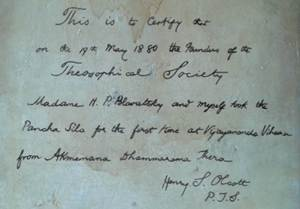 This is to Certify that
on the 19th May 1880 the Founders of the
Theosophical Society
Madame H. P. Blavatsky and myself took the
Pancha Sila for the first time at Vijayananda Vihara
from Akmemana Dhammarama Thera
Henry S. Olcott
P.T.S.